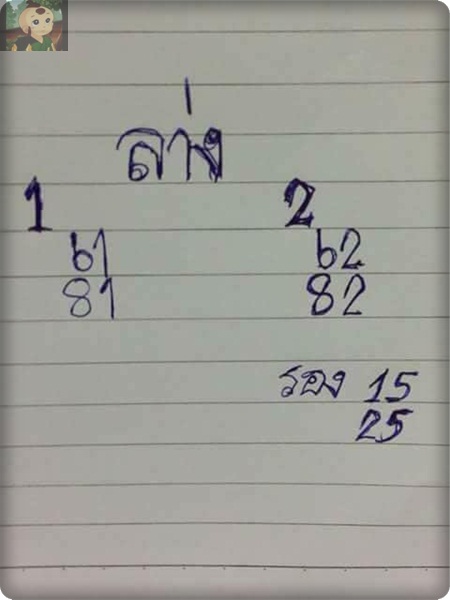 ล่าง
1 2
61 62
81 82
รอง 15
25